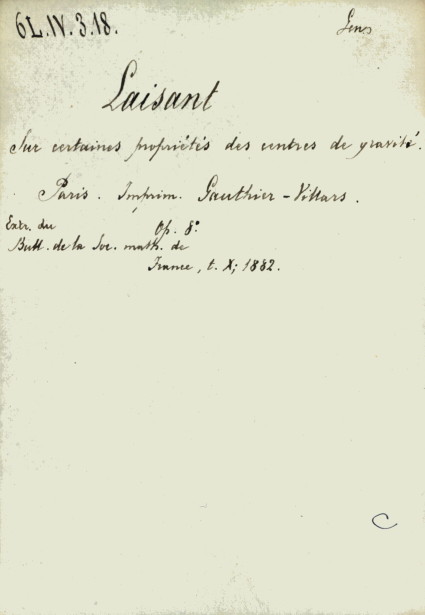 6L.IV.3.18.
Laisant
Sur certaines propriétés des centres de gravité.
Paris. Imprim. Gauthier-Villars.
Extr. du Op. 8°
Bull. de la Soc. math. de
France, t. X; 1882.
C